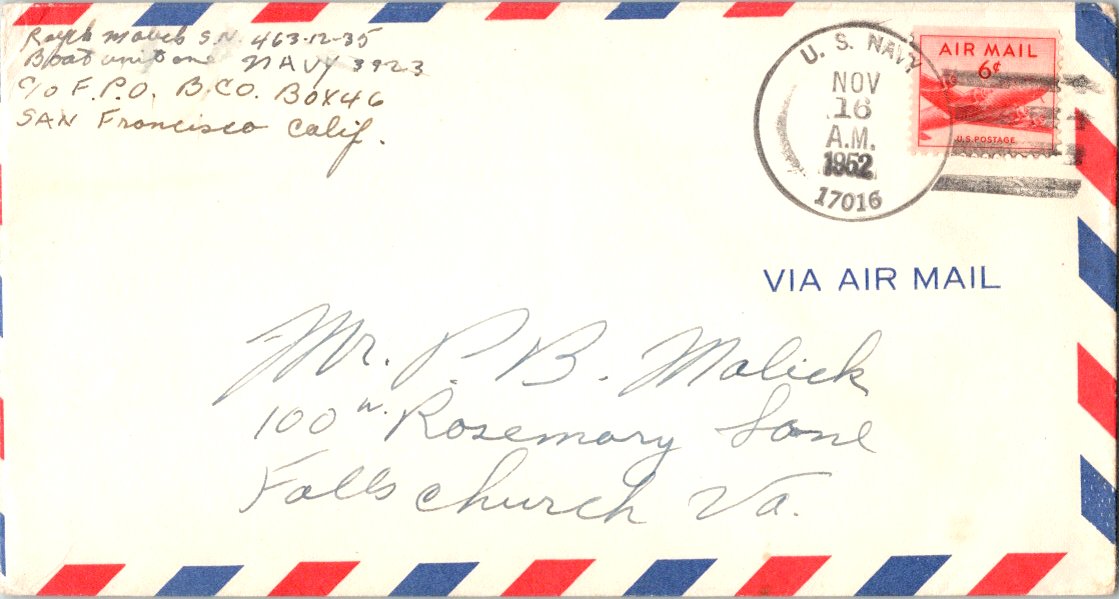 S.N. 463-12-35
Boat unit one NAVY 3923
C/O F.P.O. B.CO. BOX46
SAN Francisco Calif.
U. S. NAVY
NOV
16
A.M.
1952
17016
AIR MAIL
6¢
U.S. POSTAGE
VIA AIR MAIL
Mr. P. B. Malick
100 W. Rosemary Lane
Falls church Va.